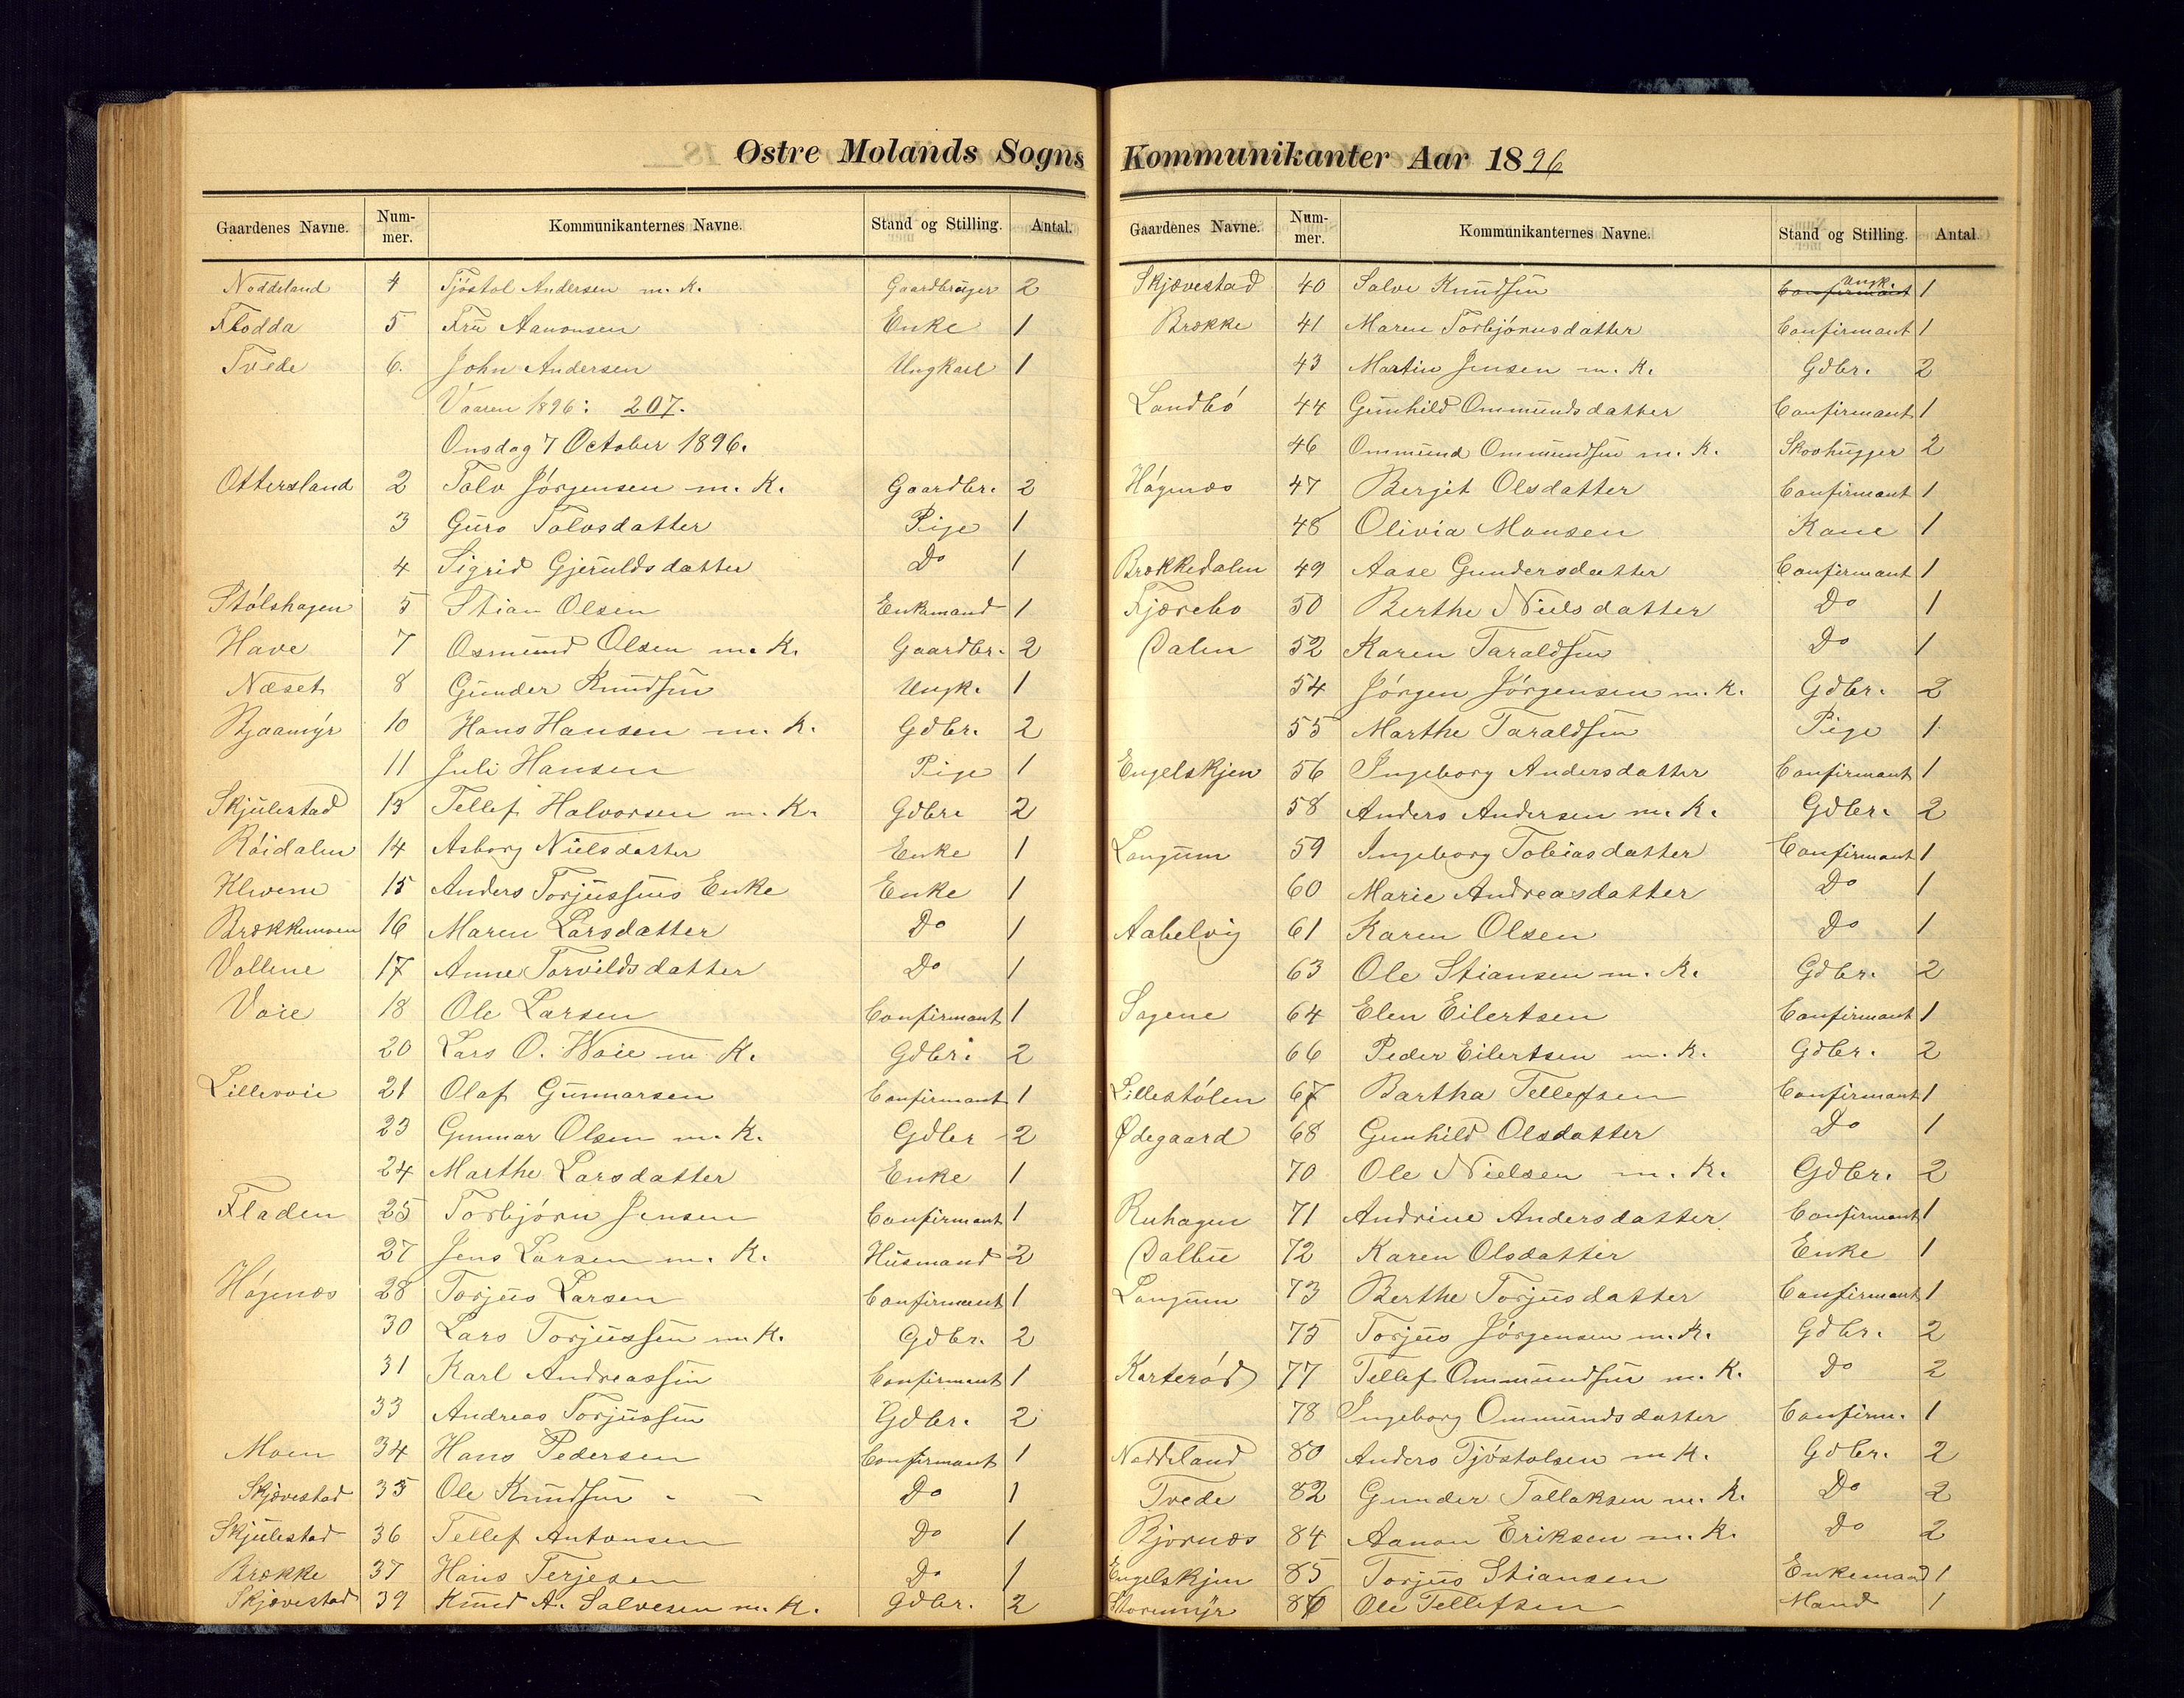 Østre Molands Sogns
Gaardenes Navne. Num-mer. Kommunikanternes Navne. Stand og Stilling. Antal.
Noddeland 4 Tjöstol Andersen m. K. Gaardbruger 2
Flodda 5 Fru Aanonsen Enke 1
Tvede 6. John Andersen Ungkarl 1
Vaaren 1896: 207.
Onsdag 7 October 1896.
Ottersland 2 Talv Jörgensen m. K. Gaardbr. 2
3 Guro Talvsdatter Pige 1
4 Sigrid Gjeruldsdatter Do 1
Stölshagen 5 Stian Olsen Enkemand 1
Have 7 Osmund Olsen m. K. Gaardbr. 2
Næset 8 Gunder Knudsen Ungk. 1
Bjaamyr 10 Hans Hansen m. K. Gdbr. 2
11 Juli Hansen Pige 1
Skjulestad 13 Tellef Halvorsen m. K. Gdbr. 2
Röidalen 14 Asborg Nielsdatter Enke 1
15 Anders Torjussens Enke Enke 1
Brækkemoen 16 Maren Larsdatter Do 1
Vollene 17 Anne Torvildsdatter Do 1
Voie 18 Ole Larsen Confirmant 1
20 Lars O. Woie m. K. Gdbr. 2
Lillevoie 21 Olaf Gunnarsen Confirmant 1
23 Gunnar Olsen m. K. Gdbr 2
24 Marthe Larsdatter Enke 1
Fladen 25 Torbjörn Jensen Confirmant 1
27 Jens Larsen m. K. Husmand 2
Högenæs 28 Torjus Larsen Confirmant 1
30 Lars Torjussen m. K. Gdbr. 2
31 Karl Andreassen Confirmant 1
33 Andreas Torjussen Gdbr. 2
Moen 34 Hans Pedersen Confirmant 1
Skjævestad 35 Ole Knudsen - - Do 1
Skjulestad 36 Tellef Antonsen Do 1
Brække 37 Hans Terjesen Do 1
Skjævestad 39 Knud A. Salvesen m. K. Gdbr. 2
Kommunikanter Aar 1896
Gaardenes Navne. Num-mer. Kommunikanternes Navne. Stand og Stilling. Antal.
Skjævestad 40 Salve Knudsen Confirmant Ungk. 1
Brække 41 Maren Torbjörnsdatter Confirmant 1
43 Martin Jensen m. K. Gdbr. 2
Landbö 44 Gunhild Ommundsdatter Confirmant 1
46 Ommund Ommundsen m. K. Skovhugger 2
Högenæs 47 Bergit Olsdatter Confirmant 1
48 Olivia Monsen Kone 1
Brækkedalen 49 Aase Gundersdatter Confirmant 1
Fjærebo 50 Berthe Nielsdatter Do 1
Dalen 52 Karen Taraldsen Do 1
54 Jörgen Jörgensen m. K. Gdbr. 2
55 Marthe Taraldsen Pige 1
Engelskjen 56 Ingeborg Andersdatter Confirmant 1
58 Anders Andersen m. K. Gdbr. 2
Langum 59 Ingeborg Tobiasdatter Confirmant 1
60 Marie Andreasdatter Do 1
Aabelvig 61 Karen Olsen Do 1
63 Ole Stiansen m. K. Gdbr. 2
Sagene 64 Elen Eilertsen Confirmant 1
66 Peder Eilertsen m. K. Gdbr. 2
Lillestölen 67 Bartha Tellefsen Confirmant 1
Ødegaard 68 Gunhild Olsdatter Do 1
70 Ole Nielsen m. K. Gdbr. 2
Ruhagen 71 Andrine Andersdatter Confirmant 1
Dalbu 72 Karen Olsdatter Enke 1
Langum 73 Berthe Torjusdatter Confirmant 1
75 Torjus Jörgensen m. K. Gdbr. 2
Karteröd 77 Tellef Ommundsen m. K. Do 2
78 Ingeborg Ommundsdatter Confirm. 1
Noddeland 80 Anders Tjöstolsen m K. Gdbr. 2
Tvede 82 Gunder Tallaksen m. K. Do 2
Bjornæs 84 Aanon Eriksen m. K. Do 2
Engelskjen 85 Torjus Stiansen Enkemand 1
Stormyr 86 Ole Tellefsen Mand 1